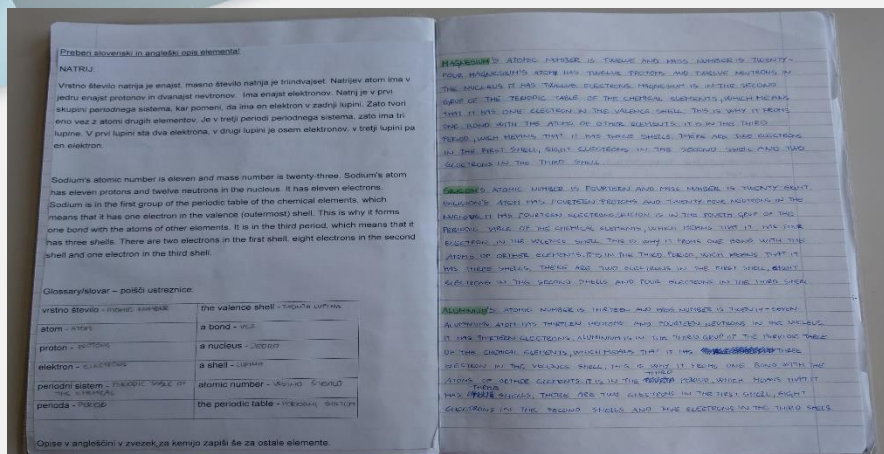 Preberi slovenski in angleški opis elementa!
NATRIJ:
Vrstno število natrija je enajst, masno število natrija je triindvajset. Natrijev atom ima v
jedru enajst protonov in dvanajst nevtronov. Ima enajst elektronov. Natrij je v prvi
skupini periodnega sistema, kar pomeni, da ima en elektron v zadnji lupini. Zato tvori
eno vez z atomi drugih elementov. Je v tretji periodi periodnega sistema, zato ima tri
lupine. V prvi lupini sta dva elektrona, v drugi lupini je osem elektronov, v tretji lupini pa
en elektron.
Sodium's atomic number is eleven and mass number is twenty-three. Sodium's atom
has eleven protons and twelve neutrons in the nucleus. It has eleven electrons.
Sodium is in the first group of the periodic table of the chemical elements, which
means that it has one electron in the valence (outermost) shell. This is why it forms
one bond with the atoms of other elements. It is in the third period, which means that it
has three shells. There are two electrons in the first shell, eight electrons in the second
shell and one electron in the third shell.
Glossary/slovar – poišči ustreznice:
vrstno število - ATOMIC NUMBER
the valence shell - ZADNJA LUPINA
atom - ATOM
a bond - VEZ
proton - PROTONS
a nucleus - JEDRO
elektron - ELECTRONS
a shell - LUPINA
periodni sistem - PERIODIC TABLE OF
THE CHEMICAL
atomic number - VRSTNO ŠTEVILO
perioda - PERIOD
the periodic table - PERIODNI SISTEM
Opise v angleščini v zvezek za kemijo zapiši še za ostale elemente.
MAGNESIUM'S ATOMIC NUMBER IS TWELVE AND MASS NUMBER IS TWENTY-
FOUR. MAGNESIUM'S ATOM HAS TWELVE PROTONS AND TWELVE NEUTRONS IN
THE NUCLEUS. IT HAS TWELVE ELECTRONS. MAGNESIUM IS IN THE SECOND
GRUP OF THE PERIODIC TABLE OF THE CHEMICAL ELEMENTS, WHICH MEANS
THAT IT HAS ONE ELECTRON IN THE VALENCE SHELL. THIS IS WHY IT FROMS
ONE BOND WITH THE ATOMS OF OTHER ELEMENTS. IT IS IN THE THIRD
PERIOD, WICH MEANS THAT IT HAS THREE SHELLS. THERE ARE TWO ELECTRONS
IN THE FIRST SHELL, EIGHT ELECTRONS IN THE SECOND SHELL AND TWO
ELECTRONS IN THE THIRD SHELL.
SILICON'S ATOMIC NUMBER IS FOURTEEN AND MASS NUMBER IS TWENTY-EIGHT.
ATOM HAS FOURTEEN PROTONS AND TWENTY-FOUR NEUTRONS IN THE
NUCLEUS. IT HAS FOURTEEN ELECTRONS. SILICON IS IN THE FOURTH GRUP OF THE
PERIODIC TABLE OF THE CHEMICAL ELEMENTS, WHICH MEANS THAT IT HAS FOUR
ELECTRON IN THE VALENCE SHELL. THIS IS WHY IT FROMS ONE BOND WITH THE
ATOMS OF ORTHER ELEMENTS. IT IS IN THE THIRD PERIOD, WICH MEANS THAT IT
HAS THREE SHELLS. THERE ARE TWO ELECTRONS IN THE FIRST SHELL, EIGHT
ELECTRONS IN THE SECOND SHELLS AND FOUR ELECTRONS IN THE THIRD SHELL.
ALUMINIUM'S ATOMIC NUMBER IS THIRTEEN AND MASS NUMBER IS TWENTY-SEVEN.
ALUMINIUMS ATOM HAS THIRTEEN PROTONS AND FOURTEEN NEUTRONS IN THE NUCLEUS.
IT HAS THIRTEEN ELECTRONS. ALUMINIUM IS IN THE THIRD GRUP OF THE PERIODIC TABLE
OF THE CHEMICAL ELEMENTS, WHICH MEANS THAT IT HAS THREE
IN THE VALENCE SHELL. THIS IS WHY IT FROMS ONE BOND WITH THE
ATOMS OF ORTHER ELEMENTS. IT IS IN THE THIRD PERIOD, WHICH MEANS THAT IT
HAS THREE SHELLS. THERE ARE TWO ELECTRONS IN THE FIRST SHELL, EIGHT
ELECTRONS IN THE SECOND SHELLS AND FIVE ELECTRONS IN THE THIRD SHELL.